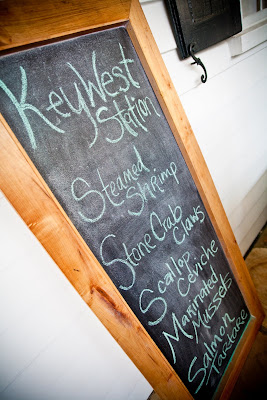 Key West
Station
Steamed
Shrimp
Stone Crab
Claws
Scallop
Ceviche
Marinated
Mussels
Salmon
Tartare